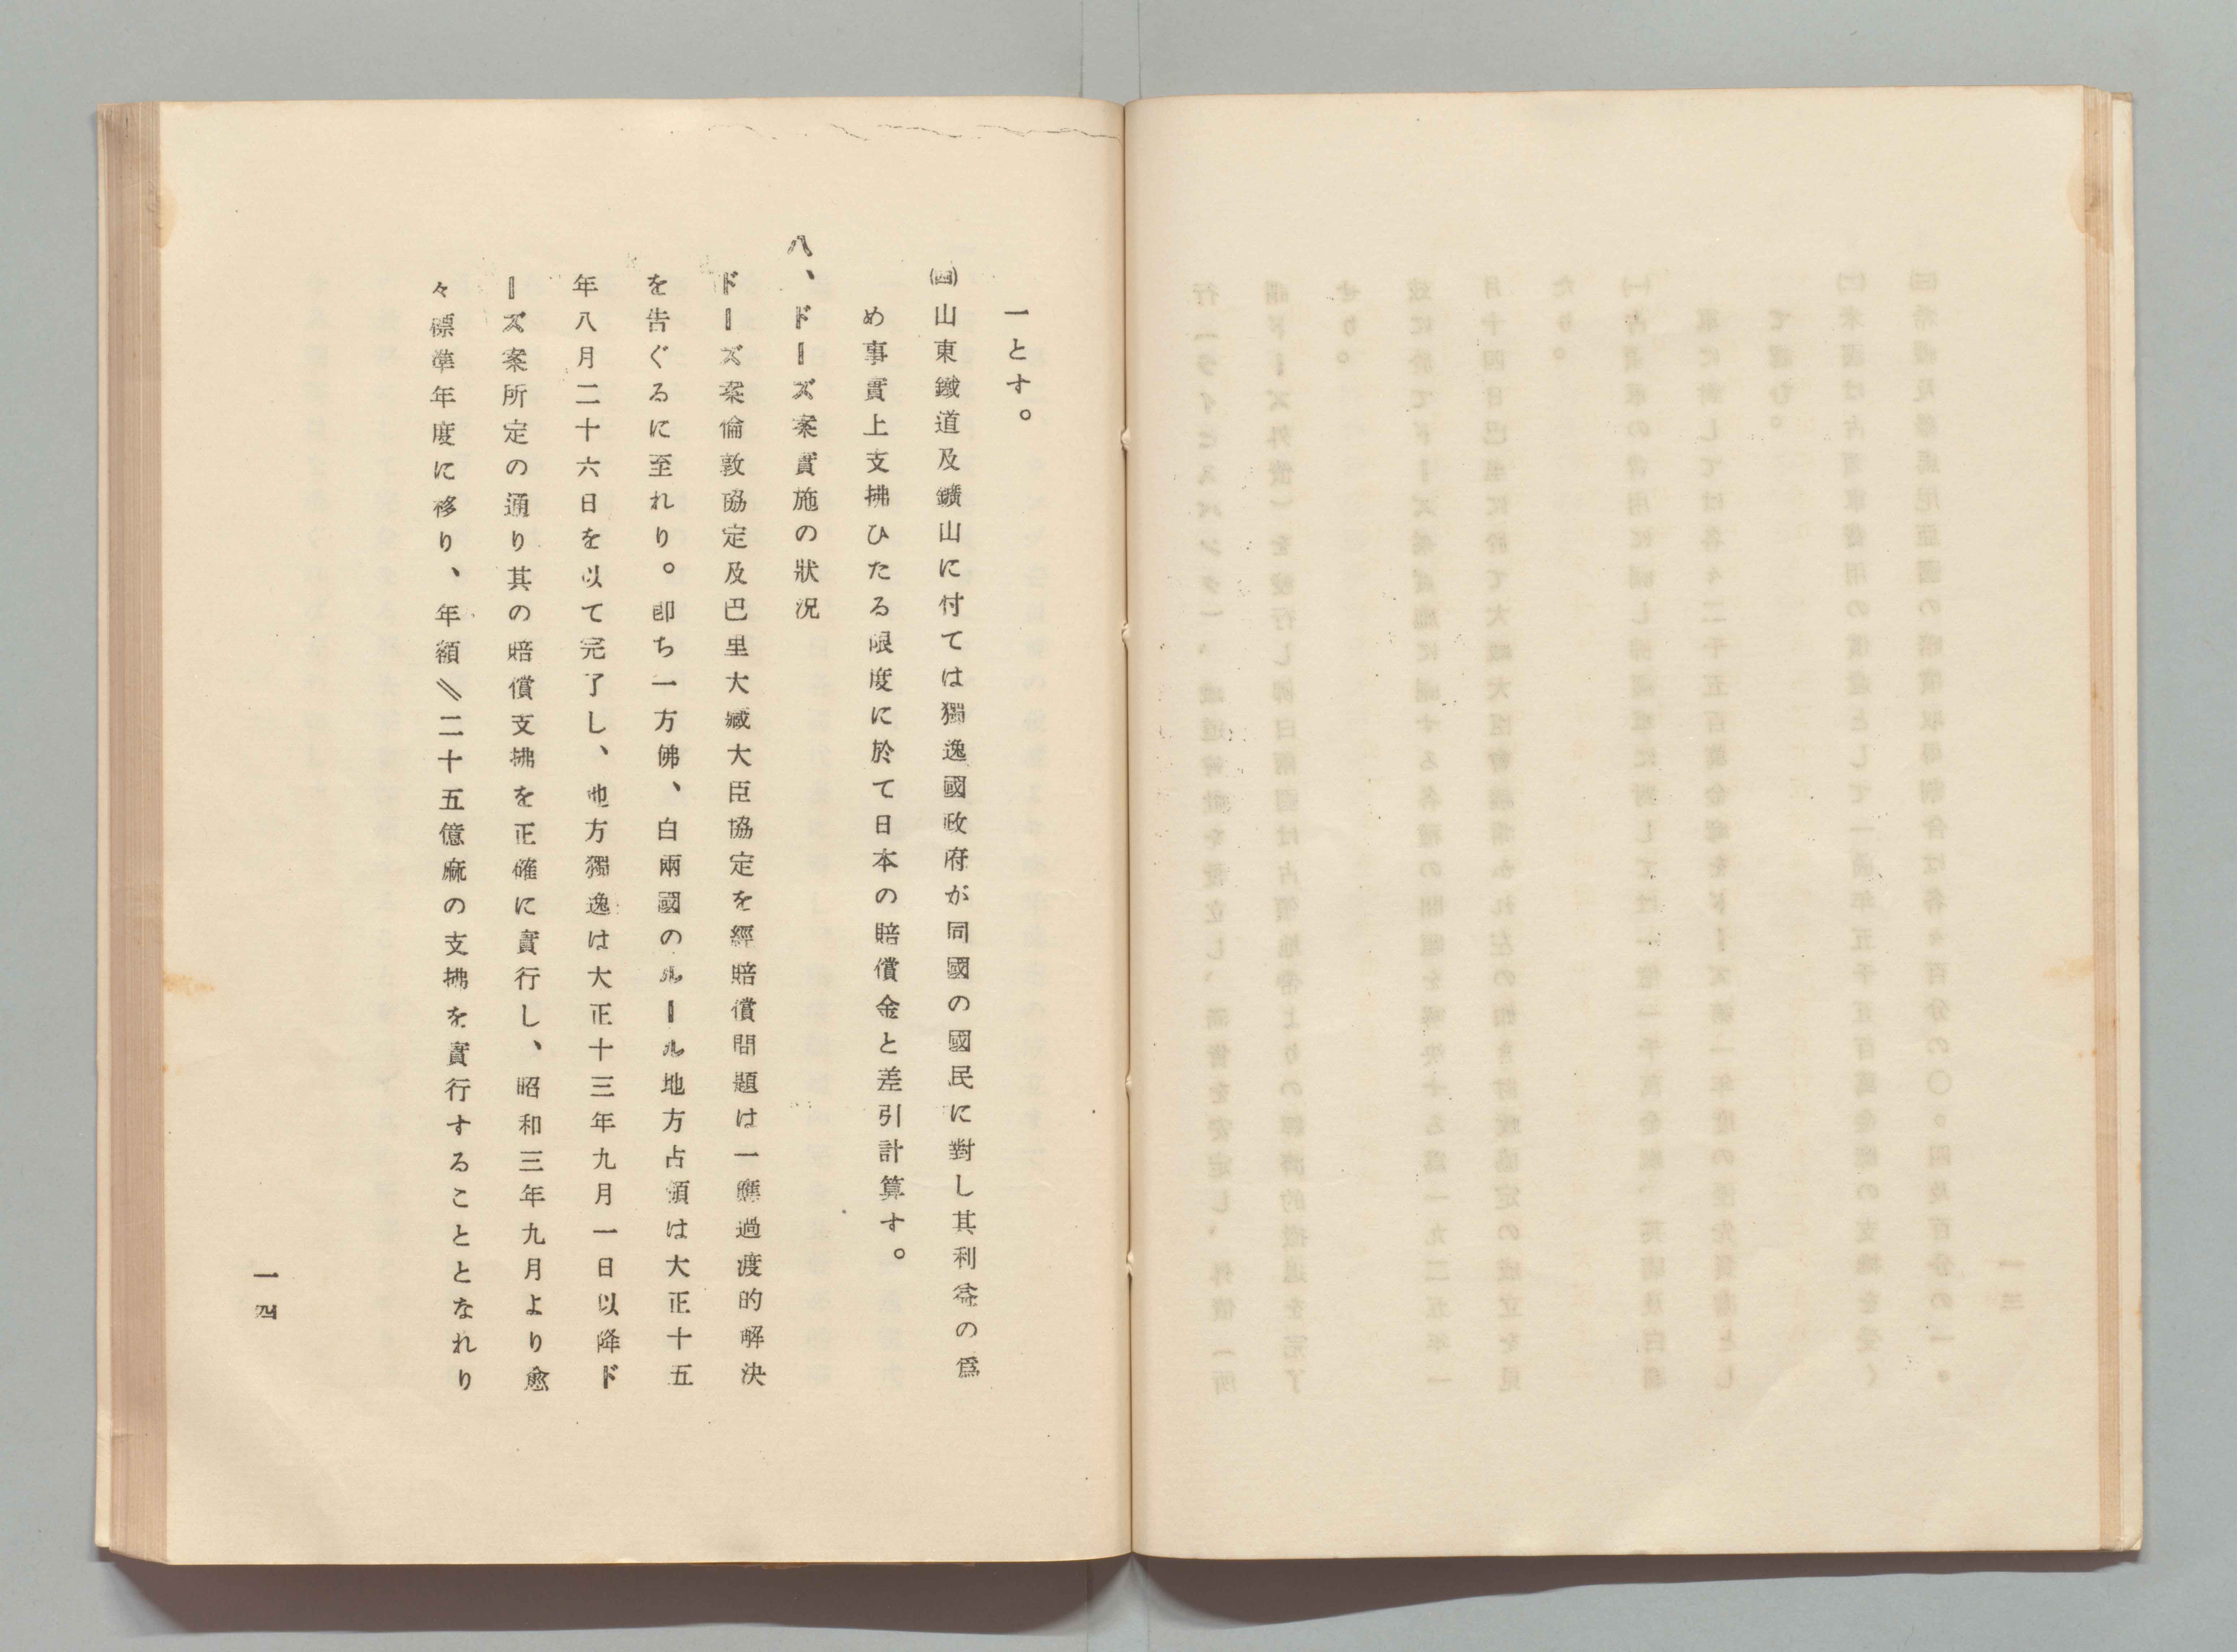 一とす。
㈣山東鐵道及鑛山に付ては獨逸國政府が同國の國民に對し其利益の爲
め事實上支拂ひたる限度に於て日本の賠償金と差引計算す。
八、ドーズ案實施の狀況
ドーズ案倫敦協定及巴里大藏大臣協定を經賠償問題は一應過渡的解決
を告ぐるに至れり。卽ち一方佛、白兩國のルール地方占領は大正十五
年八月二十六日を以て完了し、他方獨逸は大正十三年九月一日以降ド
ーズ案所定の通り其の賠償支拂を正確に實行し、昭和三年九月より愈
々標準年度に移り、年額二十五億麻の支拂を實行することとなれり
一四